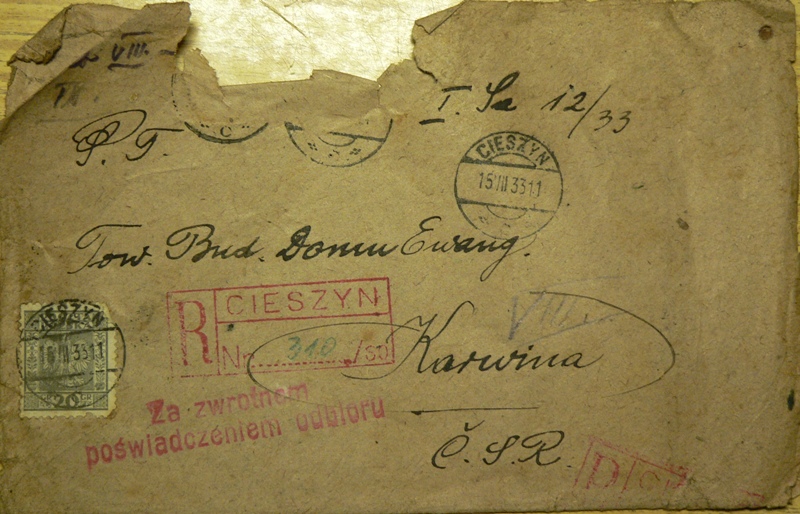 VIII.
I. Sa 12/33
P. T.
CIESZYN
15 III 33 11
Tow. Bud. Domu Ewang.
R
CIESZYN
Nr. 310 /
Karwina
CIESZYN
15 III 33 11
20
Za zwrotnem
poświadczeniem odbioru
Č. S. R.